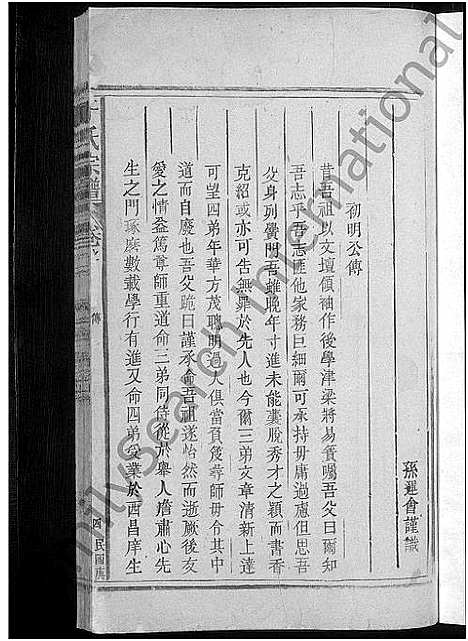 孫運會謹識
初明公傳
昔吾祖以文壇領袖作後學津梁將易簀囑吾父曰爾知
吾志乎吾志匪他家務巨細爾可承持毋庸過慮但思吾
父身列黌門吾雖晚年寸進未能囊脫秀才之穎而書香
克紹或亦可告無罪於先人也今爾三弟文章清新上達
可望四弟年華方茂聰明過人俱當負笈尋師毋令其中
道而自廢也吾父跪曰謹承命吾祖遂怡然而逝厥後友
愛之情益篤尊師重道命三弟同侍從於舉人詹肅心先
生之門琢磨數載學行有進又命四弟受業於西昌庠生
氏宗譜
傳
四
民國
FamilySearch International